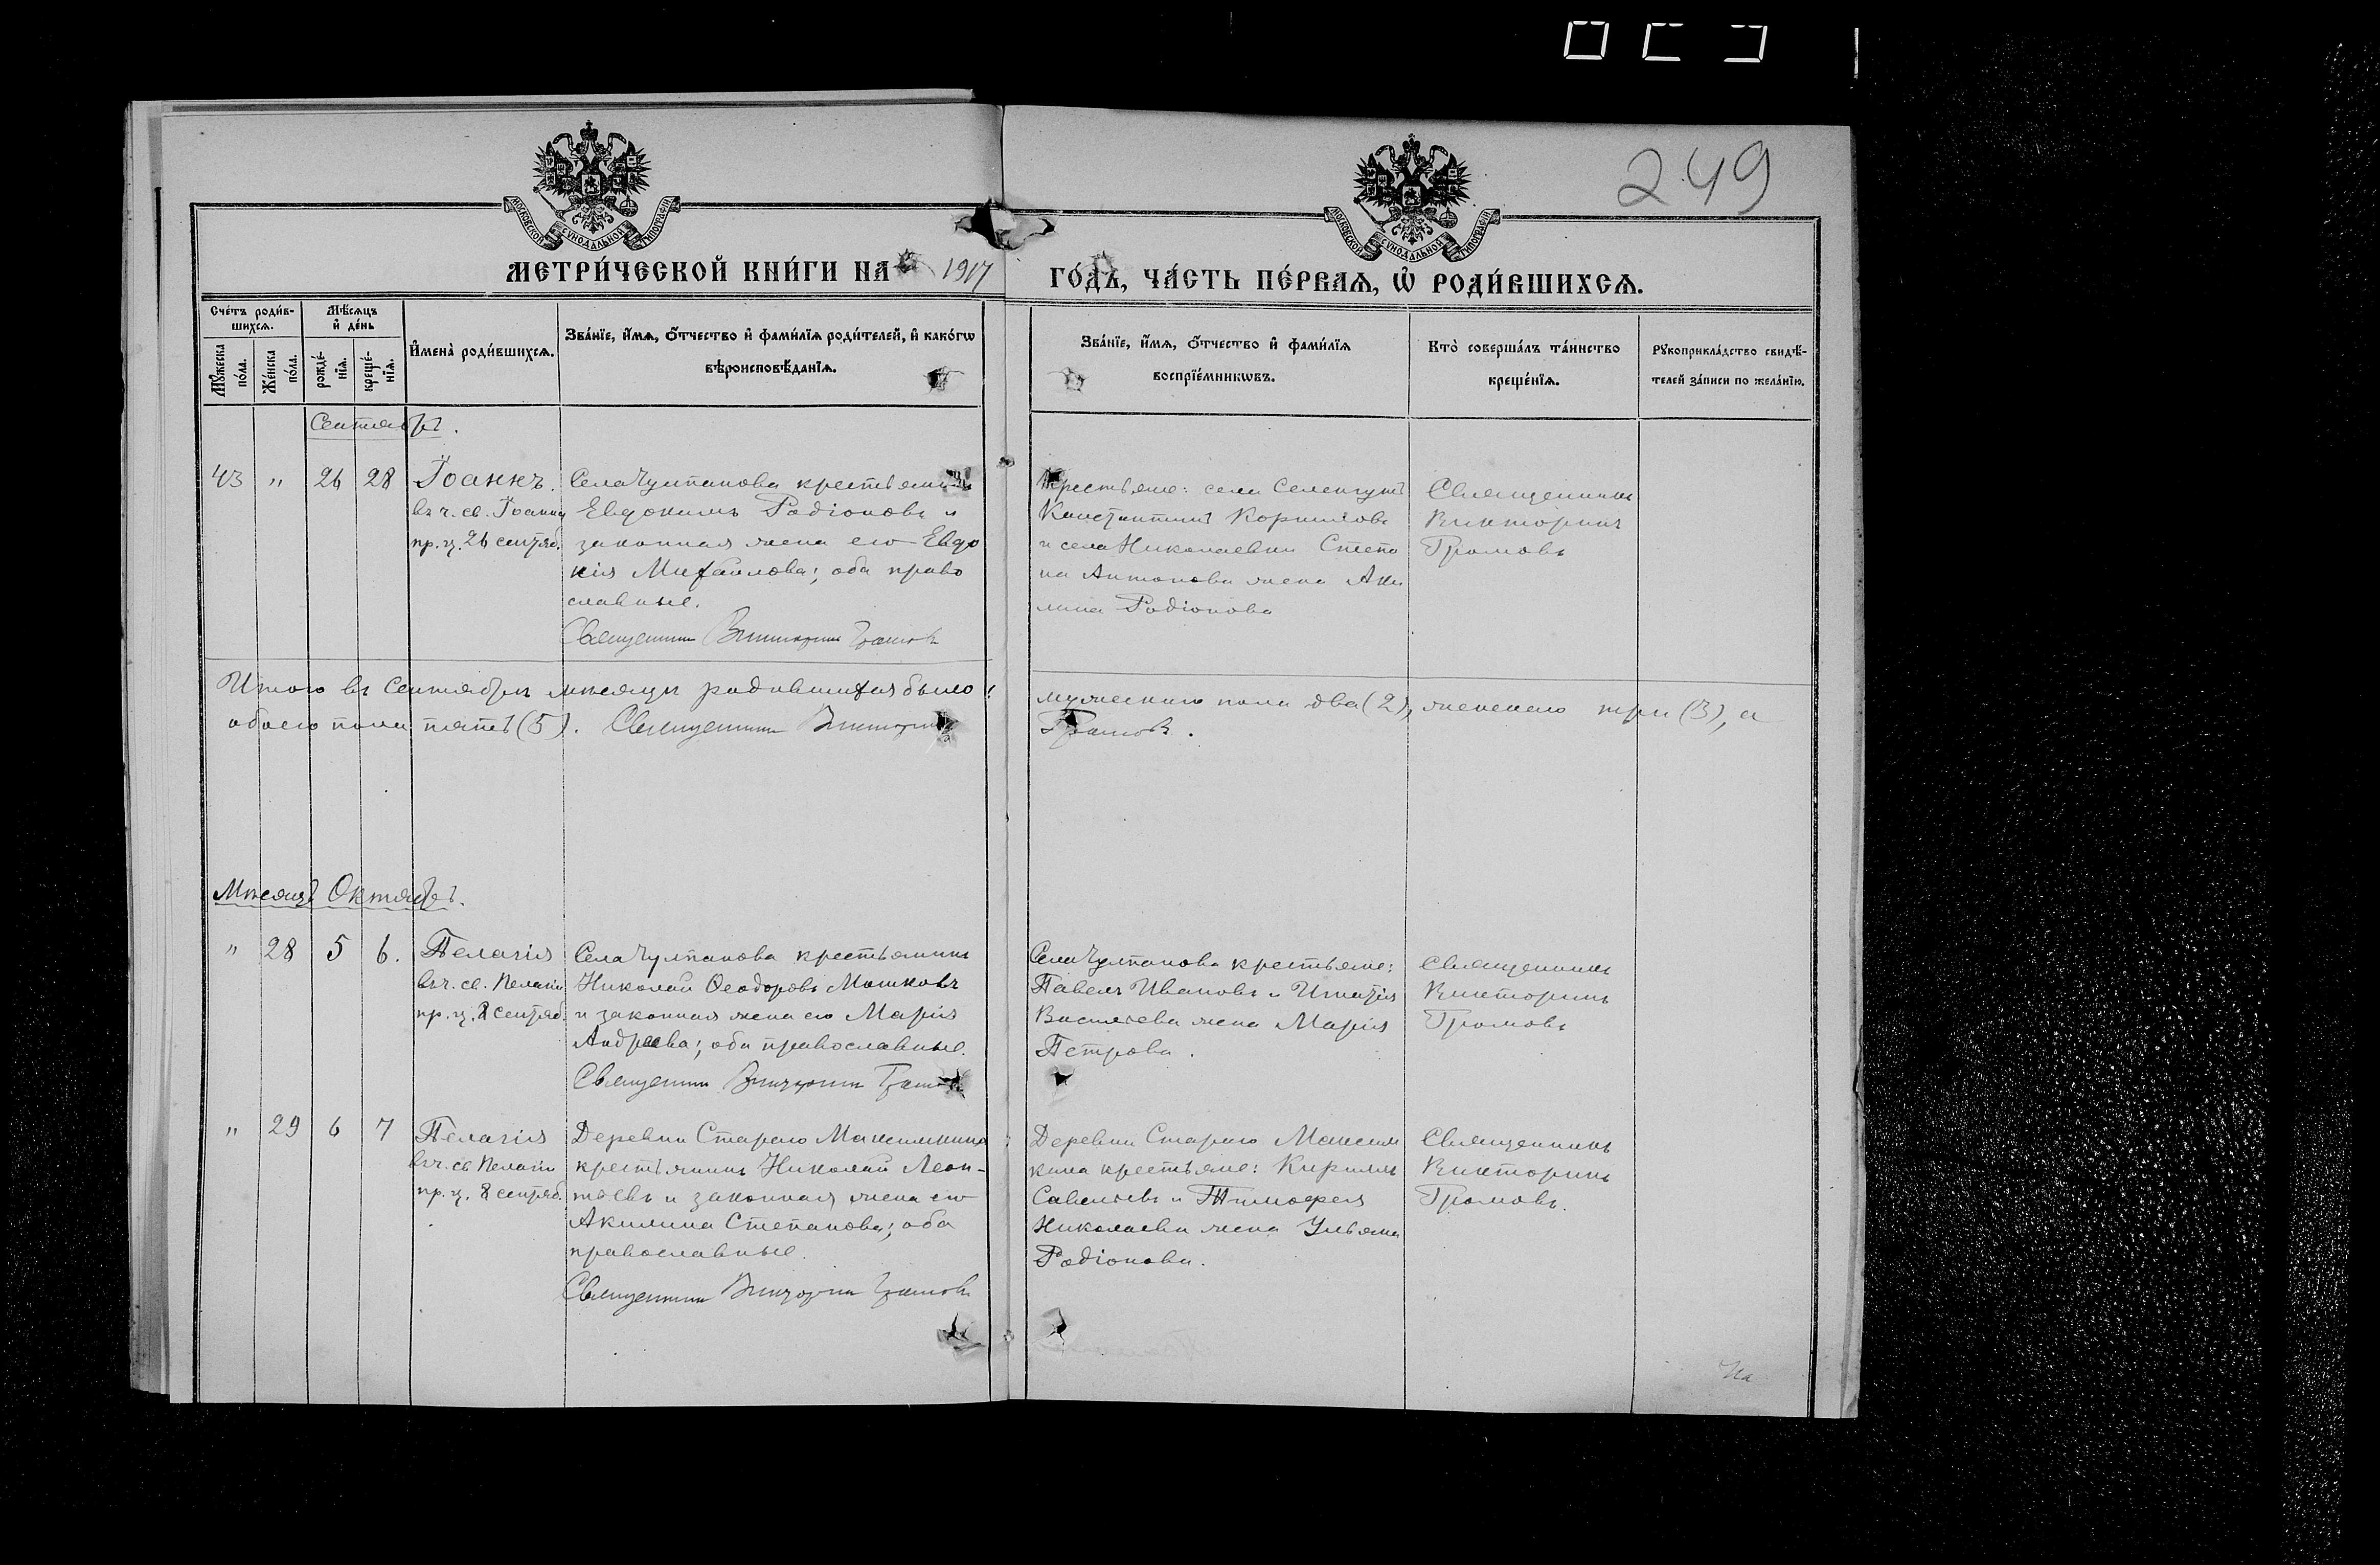 249
МОСКОВСКОЙ СѴНОДАЛЬНОЙ ТИПОГРАФІИ
МОСКОВСКОЙ СѴНОДАЛЬНОЙ ТИПОГРАФІИ
МЕТРИ́ЧЕСКОЙ КНИ́ГИ НА 1917
ГО́ДЪ, ЧА́СТЬ ПЕ́РВАѦ, Ѡ҆ РОДИ́ВШИХСѦ.
Сче́тъ роди́в-
шихсѧ.
Мѣ́сѧцъ
и҆ де́нь
Мꙋ́жеска
по́ла.
Же́нска
по́ла.
рожде́-
нїѧ.
креще́-
нїѧ.
И҆мена̀ роди́вшихсѧ.
Зва́нїе, и҆́мѧ, ѻ҆́тчество и҆ фами́лїѧ роди́телей, и҆ како́гѡ
вѣроисповѣ́данїѧ.
Зва́нїе, и҆́мѧ, ѻ҆́тчество и҆ фами́лїѧ
воспрїе́мникѡвъ.
Кто̀ соверша́лъ та́инство
креще́нїѧ.
Рꙋкоприкла́дство свидѣ́-
телей за́писи по жела́нїю.
Сентябрь.
43 " 26 28
Іоаннъ.
въ ч. св. Іоанна
пр. ц. 26 сентяб.
Села Чулпанова крестьянинъ
Евдокимъ Родіоновъ и
законная жена его Евдо
кія Михаилова; оба право
славные.
Священникъ Викторинъ Громовъ
Крестьяне: села
Константинъ Корниловъ
и села Николаевки Степа
на Антонова жена Аки
лина Родіонова
Священникъ
Викторинъ
Громовъ
Итого въ Сентябрѣ мѣсяцѣ родившихся было: мужескаго пола два (2), женскаго три (3), а
обоего пола пять (5). Священникъ Викторинъ Громовъ.
Мѣсяцъ Октябрь.
" 28 5 6.
Пелагія
въ ч. св. Пелагіи
пр. ц. 8 сентяб.
Села Чулпанова крестьянинъ
Николай Ѳеодоровъ Мошковъ
и законная жена его Марія
Андреева; оба православные.
Священникъ Викторинъ Громовъ
Села Чулпанова крестьяне:
Павелъ Ивановъ и Игнатія
Васильева жена Марія
Петрова.
Священникъ
Викторинъ
Громовъ
" 29 6 7
Пелагія
въ ч. св. Пелагіи
пр. ц. 8 сентяб.
Деревни Стараго Максимкина
крестьянинъ Николай Леон-
тьевъ и законная жена его
Акилина Степанова; оба
православные.
Священникъ Викторинъ Громовъ
Деревни Стараго Максим
кина крестьяне: Кириллъ
Савельевъ и Тимофея
Николаева жена Ульяна
Родіонова.
Священникъ
Викторинъ
Громовъ.